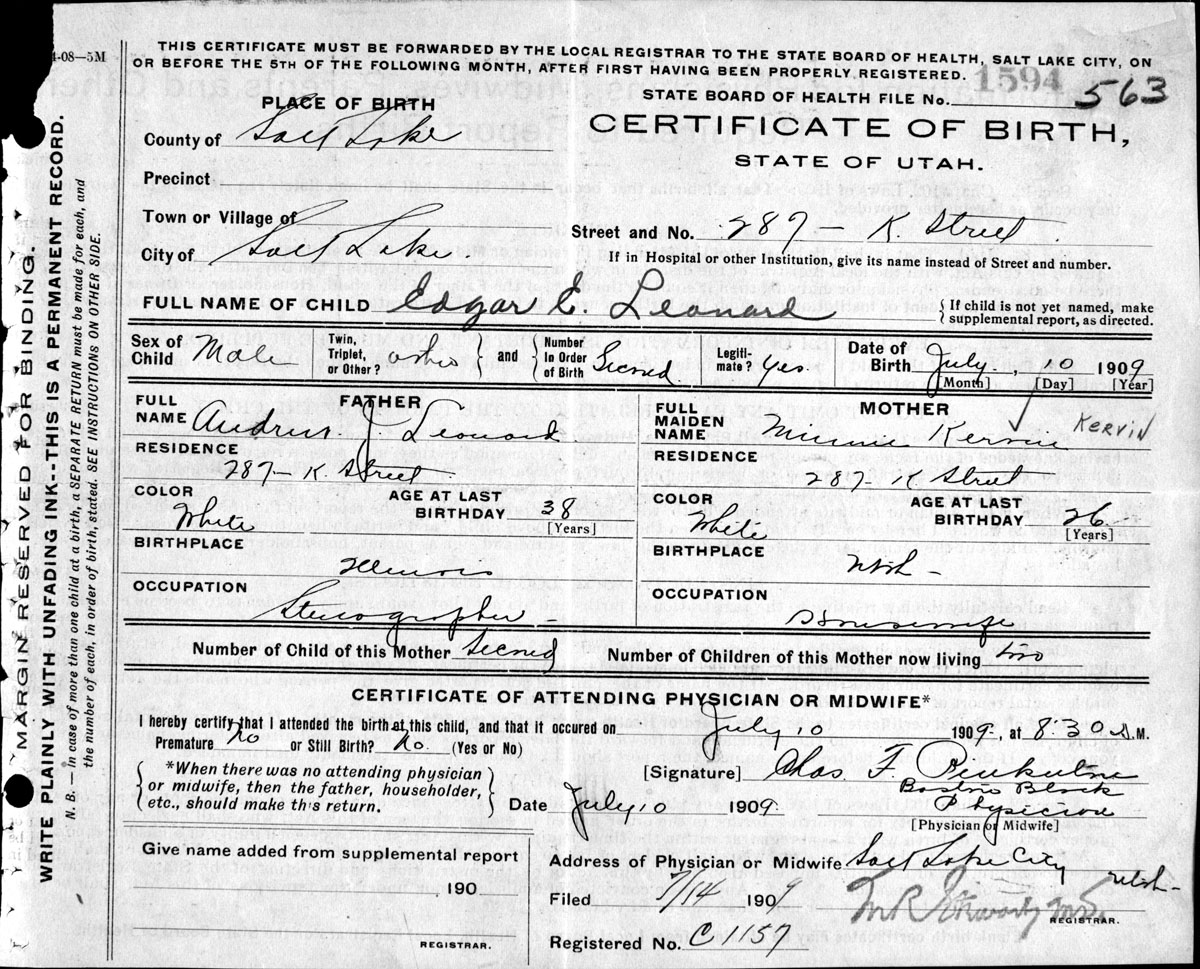 4-08—5M
THIS CERTIFICATE MUST BE FORWARDED BY THE LOCAL REGISTRAR TO THE STATE BOARD OF HEALTH, SALT LAKE CITY, ON
OR BEFORE THE 5TH OF THE FOLLOWING MONTH, AFTER FIRST HAVING BEEN PROPERLY REGISTERED.
1594
PLACE OF BIRTH
STATE BOARD OF HEALTH FILE No. 563
County of Salt Lake
CERTIFICATE OF BIRTH,
STATE OF UTAH.
Precinct
Town or Village of
Street and No. 287— K. Street.
City of Salt Lake.
If in Hospital or other Institution, give its name instead of Street and number.
FULL NAME OF CHILD Edgar C. Leonard
{ If child is not yet named, make supplemental report, as directed.
Sex of Child Male
Twin, Triplet, or Other?
and Number In Order of Birth Second
Legitimate? Yes.
Date of Birth July, 10 1909
[Month] [Day] [Year]
FATHER
FULL NAME Andrew J. Leonard
RESIDENCE
287— K. Street.
COLOR White
AGE AT LAST BIRTHDAY 38
[Years]
BIRTHPLACE
Illinois
OCCUPATION
Stenographer —
MOTHER
FULL MAIDEN NAME Minnie Kervin
KERVIN
RESIDENCE
287— K Street
COLOR White
AGE AT LAST BIRTHDAY 26
[Years]
BIRTHPLACE
Utah —
OCCUPATION
Housewife
Number of Child of this Mother Second
Number of Children of this Mother now living two
CERTIFICATE OF ATTENDING PHYSICIAN OR MIDWIFE*
I hereby certify that I attended the birth of this child, and that it occured on July 10 1909, at 8:30 A.M.
Premature No or Still Birth? No. (Yes or No)
{ *When there was no attending physician
or midwife, then the father, householder,
etc., should make this return. }
[Signature] Chas. F.
Boston Block
Date July 10 1909
Physician
[Physician or Midwife]
Give name added from supplemental report
190
REGISTRAR.
Address of Physician or Midwife Salt Lake City Utah —
Filed 7/14 1909
REGISTRAR.
Registered No. C1157
MARGIN RESERVED FOR BINDING.
WRITE PLAINLY WITH UNFADING INK--THIS IS A PERMANENT RECORD.
N. B.—In case of more than one child at a birth, a SEPARATE RETURN must be made for each, and
the number of each, in order of birth, stated. SEE INSTRUCTIONS ON OTHER SIDE.